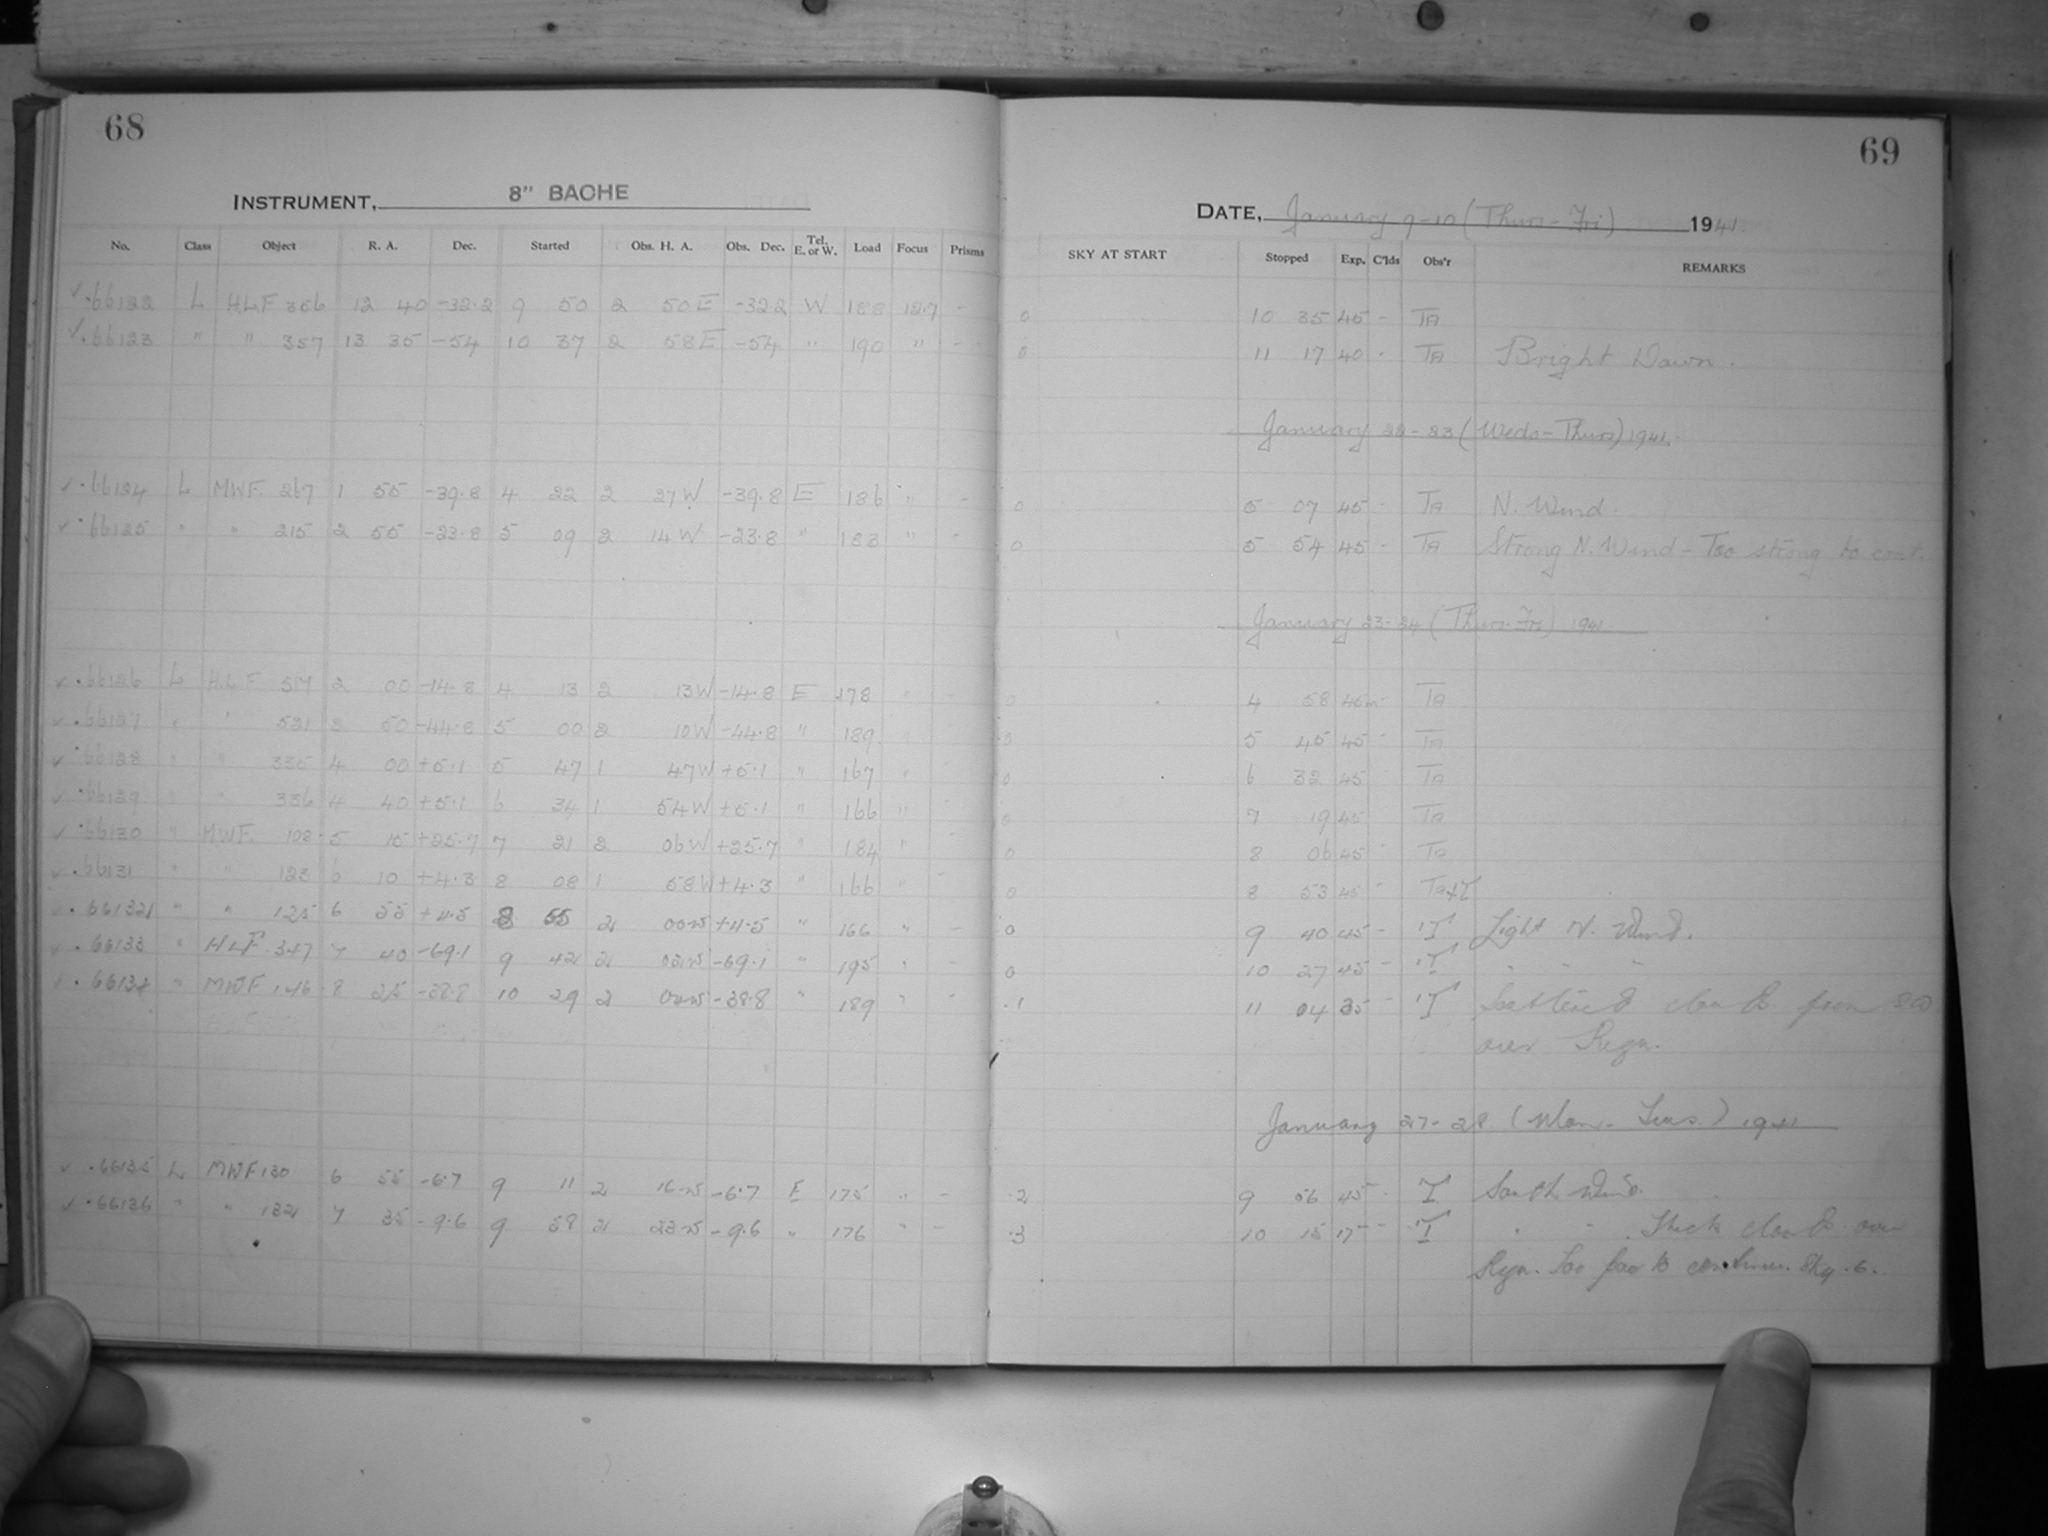 68
69
INSTRUMENT, 8" BACHE
DATE, January 9-10 (Thurs-Fri) 1941
No. Class Object R. A. Dec. Started Obs. H. A. Obs. Dec. Tel. E. or W. Load Focus Prisms SKY AT START Stopped Exp. C'lds Obs'r REMARKS
.66122 L H.L.F 356 12 40 -32.2 9 50 2 50 E -32.2 W 188 12.7 - 0 10 35 45 - TA
.66123 " " 357 13 35 -54 10 37 2 58 E -54 " 190 " - 0 11 17 40 - TA Bright Dawn.
January 22-23 (Weds-Thurs) 1941.
.66124 L MWF. 267 1 55 -39.8 4 22 2 27 W -39.8 E 186 " - 0 5 07 45 - TA N. Wind.
.66125 " " 215 2 55 -23.8 5 09 2 14 W -23.8 " 183 " - 0 5 54 45 - TA Strong N. Wind - Too strong to cont.
January 23-24 (Thurs-Fri) 1941
.66126 L H.L.F 517 2 00 -14.8 4 13 2 13 W -14.8 E 178 " - 0 4 58 45m - TA
.66127 " " 531 50 -44.8 5 00 2 10 W -44.8 " 189 " 5 45 45 - TA
.66128 " " 335 4 00 +5.1 5 47 1 47 W +5.1 " 167 " 0 6 32 45 TA
.66129 " " 336 4 40 +5.1 6 34 1 54 W +5.1 " 166 " 0 7 19 45 TA
.66130 " MWF. 108 5 15 +25.7 7 21 2 06 W +25.7 " 184 " - 0 8 06 45 - TA
.66131 " " 123 6 10 +4.3 8 08 1 58 W +4.3 " 166 " - 0 8 53 45 - Ta+T
.66132 " " 125 6 55 +4.5 8 55 2 00 W +4.5 " 166 " - 0 9 40 45 - T Light N. Wind.
.66133 " HLF. 347 7 40 -69.1 9 42 2 02 W -69.1 " 195 " - 0 10 27 45 - T " " "
.66134 " MWF 146 8 25 -38.8 10 29 2 04 W -38.8 " 189 " - .1 11 04 35 - T Scattered clouds from SW
over Regn.
January 27-28 (Mon.-Tues.) 1941
.66135 L MWF 130 6 55 -6.7 9 11 2 16 W -6.7 E 175 " - .2 9 56 45 - T South Wind.
.66136 " " 132 7 35 -9.6 9 58 2 23 W -9.6 " 176 " - .3 10 15 17 - T " " . Thick clouds over
Regn. Too poor to continue. Sky .6.